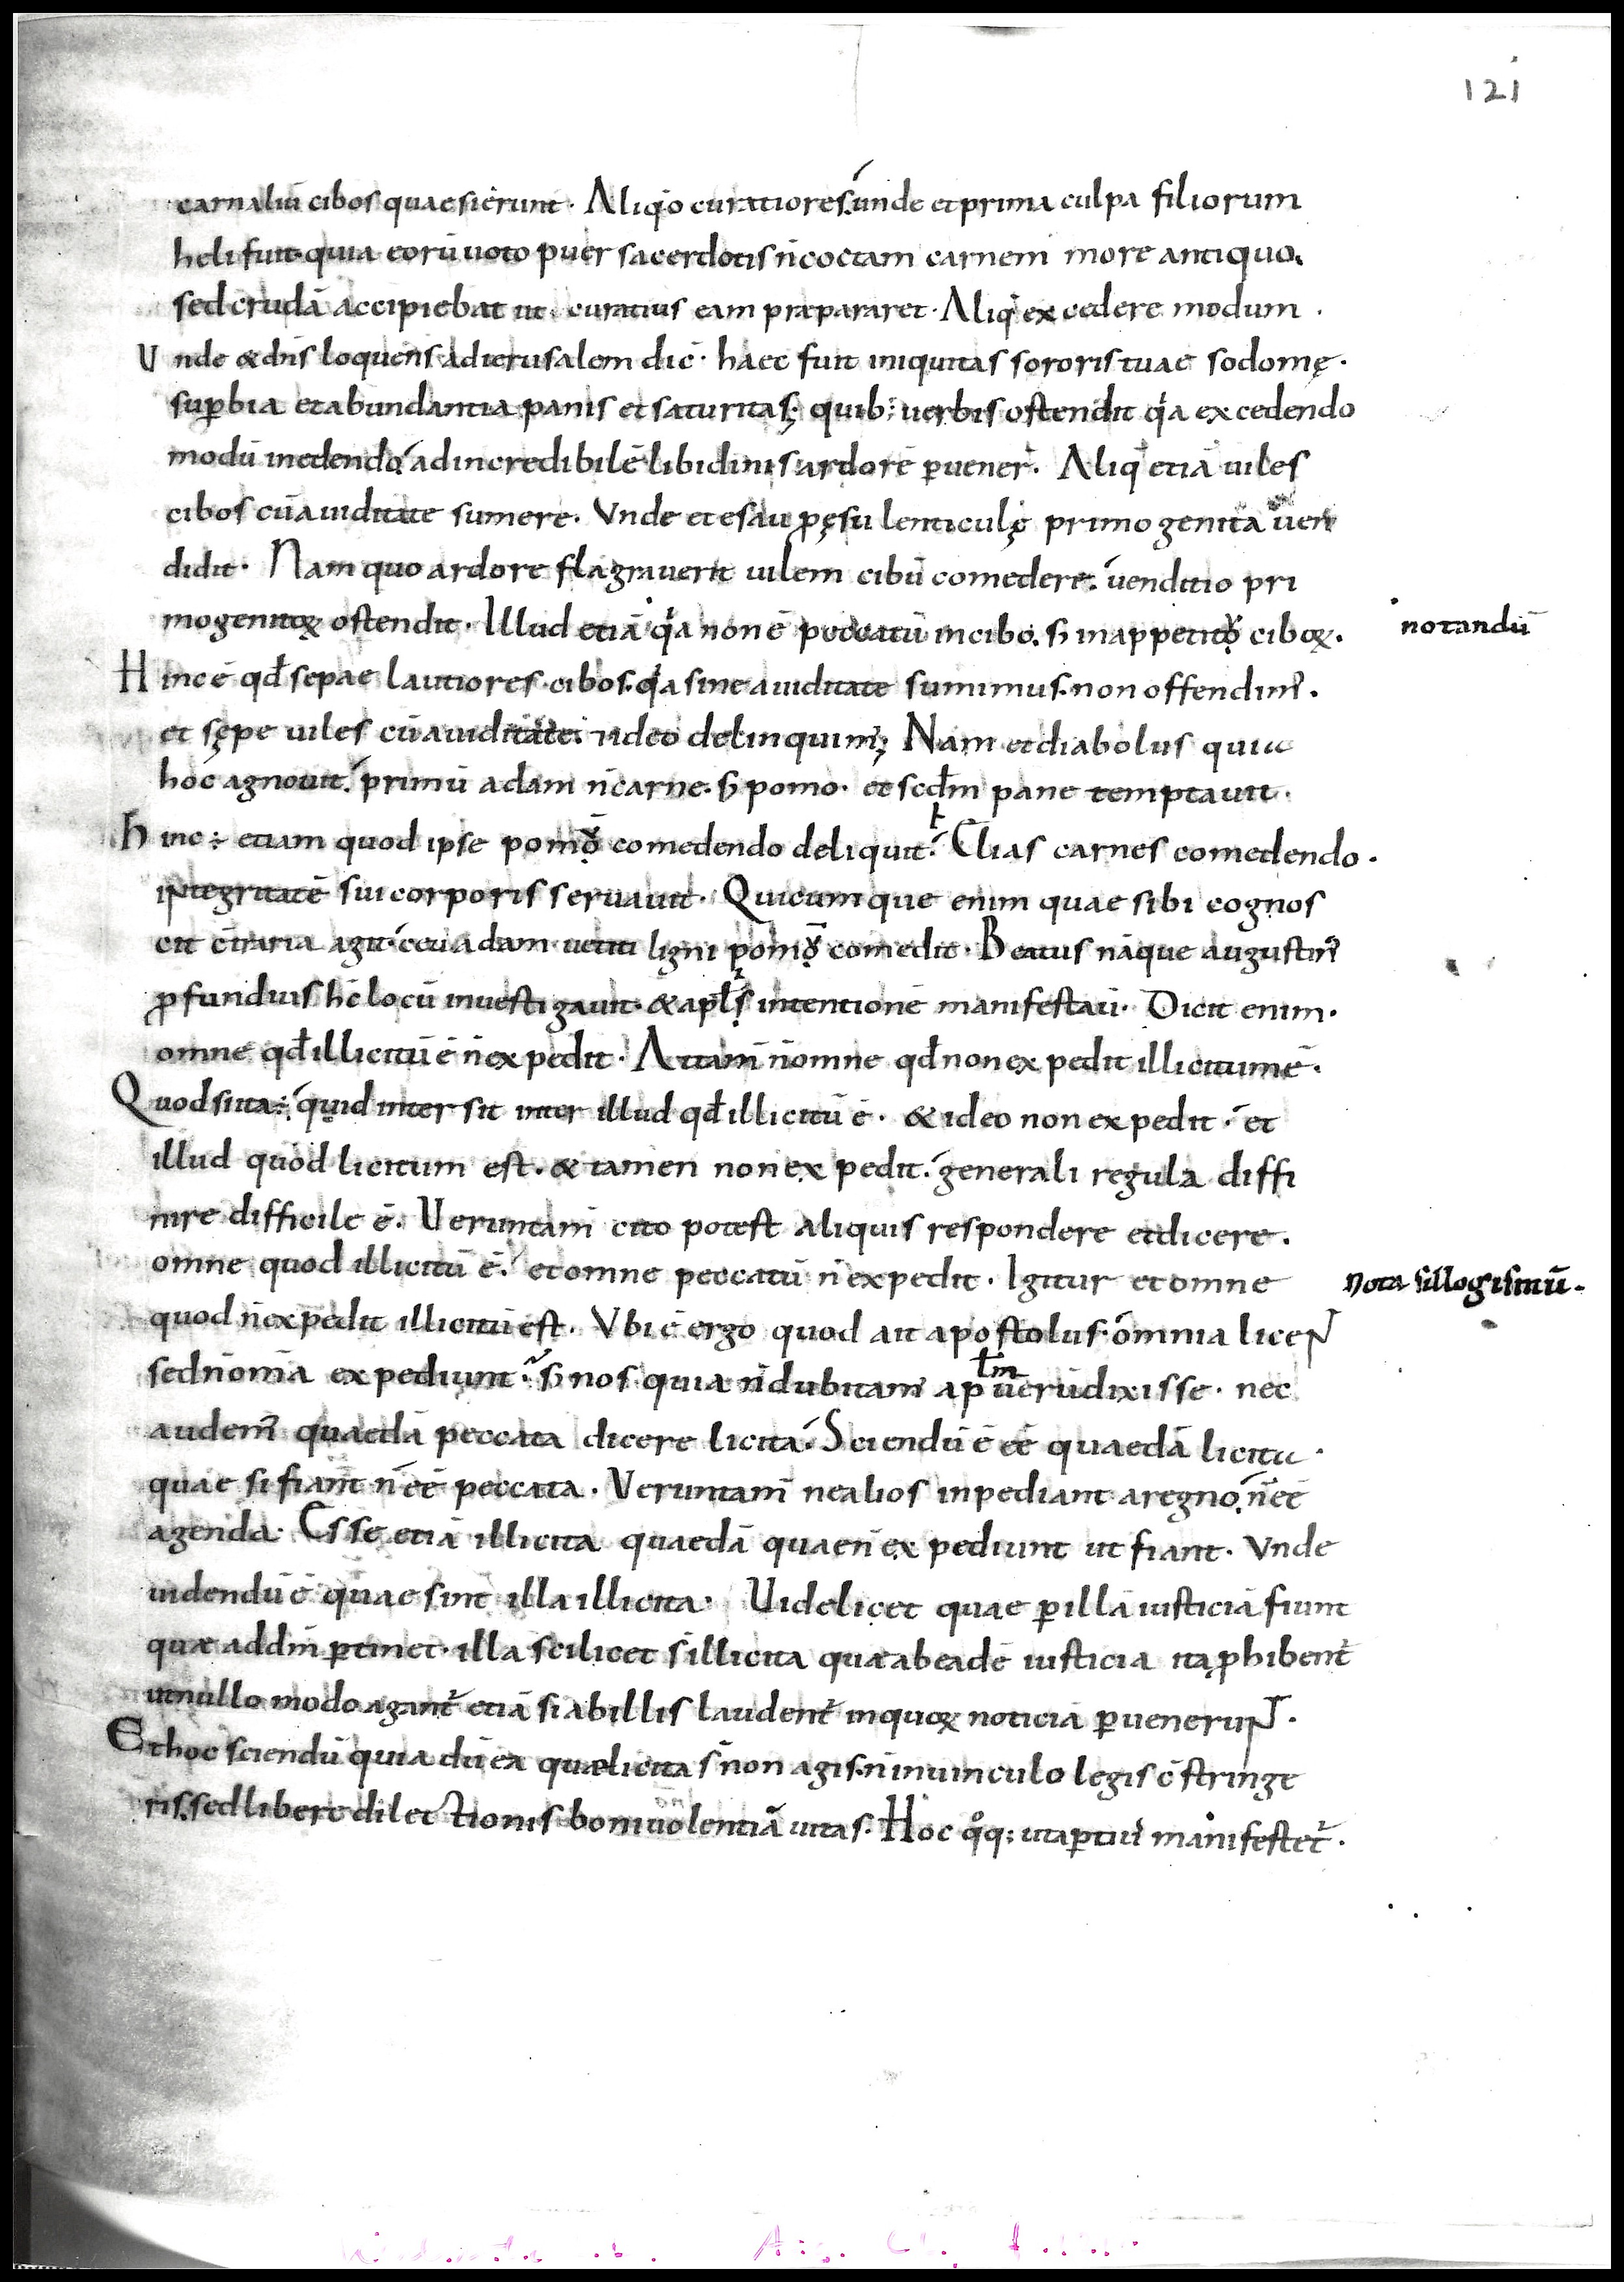 121
carnaliũ cibos quaesierunt. Aliqñ curatiores. unde et prima culpa filiorum
heli fuit. quia eorũ uoto puer sacerdotis ñ coctam carnem more antiquo.
sed crudã accipiebat ut curatius eam praepararet. Aliqñ excedere modum.
Vnde & dñs loquens ad ierusalem dic̄. haec fuit iniquitas sororis tuae sodomę.
sup̱bia et abundantia panis et saturitas. quib; uerbis ostendit qͥa excedendo
modũ in edendo. ad incredibilẽ libidinis ardorẽ p̱uener̄. Aliqñ etiã uiles
cibos cũ auiditate sumere. Vnde et esau ꝓ ęsu lenticulę primogenita uen
didit. Nam quo ardore flagrauerit uilem cibũ comedere. uenditio pri
mogenitoꝝ ostendit. Illud etiã qͥa non ẽ peccatũ in cibo. s̄ in appetitu ciboꝝ.
notandũ
Hinc ẽ qđ sepae lautiores cibos. qͥa sine auiditate sumimus. non offendim᾽.
et sępe uiles cũ auiditate. ideo delinquim᾽; Nam et diabolus quia
hoc agnouit. primũ adam ñ carne. s̄ pomo. et scđm pane temptauit.
Hinc ÷ etiam quod ipse pomũ comedendo deliquit. Elias carnes comedendo.
integritatẽ sui corporis seruauit. Quicumque enim quae sibi cognos
cit c̄traria agit. ceu adam uetiti ligni pomũ comedit. Beatus nãque augustin᾽
ꝓfundius hc̄ locũ inuestigauit. & apłs intentionẽ manifestaũ. Dicit enim.
omne qđ illicitũ ẽ ñ expedit. Attam̄ ñ omne qđ non expedit illicitum ẽ.
Quod si ita ÷. quid intersit inter illud qđ illicitũ ẽ. & ideo non expedit. et
illud quod licitum est. & tamen non expedit. generali regula diffi
nire difficile ẽ. Veruntam̄ cito potest aliquis respondere et dicere.
omne quod illicitũ ẽ. et omne peccatũ ñ expedit. Igitur et omne
nota sillogismũ.
quod ñ expedit illicitũ est. Vbi ẽ ergo quod ait apostolus. omnia licent
sed ñ om̄ia expediunt. s̄ nos quia ñ dubitam᾽ apłm uerũ dixisse. nec
audem᾽ quaedã peccata dicere licita. Sciendũ ẽ eẽ quaedã licita.
quae si fiant ñ eẽ peccata. Veruntam̄ ne alios inpediant a regno. ñ eẽ
agenda. Esse etiã illicita quaedã quae ñ expediunt ut fiant. Vnde
uidendũ ẽ quae sint illa illicita. Videlicet quae p̱ illã iusticiã fiunt
quae ad dm̄ p̱tinet. illa scilicet s̄ illicita quae ab eadẽ iusticia ita ꝓhibent᾽
ut nullo modo agant᾽ etiã si ab illis laudent᾽ in quoꝝ noticiã p̱uenerunt.
Et hoc sciendũ quia dũ ea quae licita s̄ non agis. ñ in uinculo legis c̄stringe
ris. sed libere dilectionis boniuolentiã uitas. Hoc qͦq; ut ap̱tiu᾽ manifestet᾽.